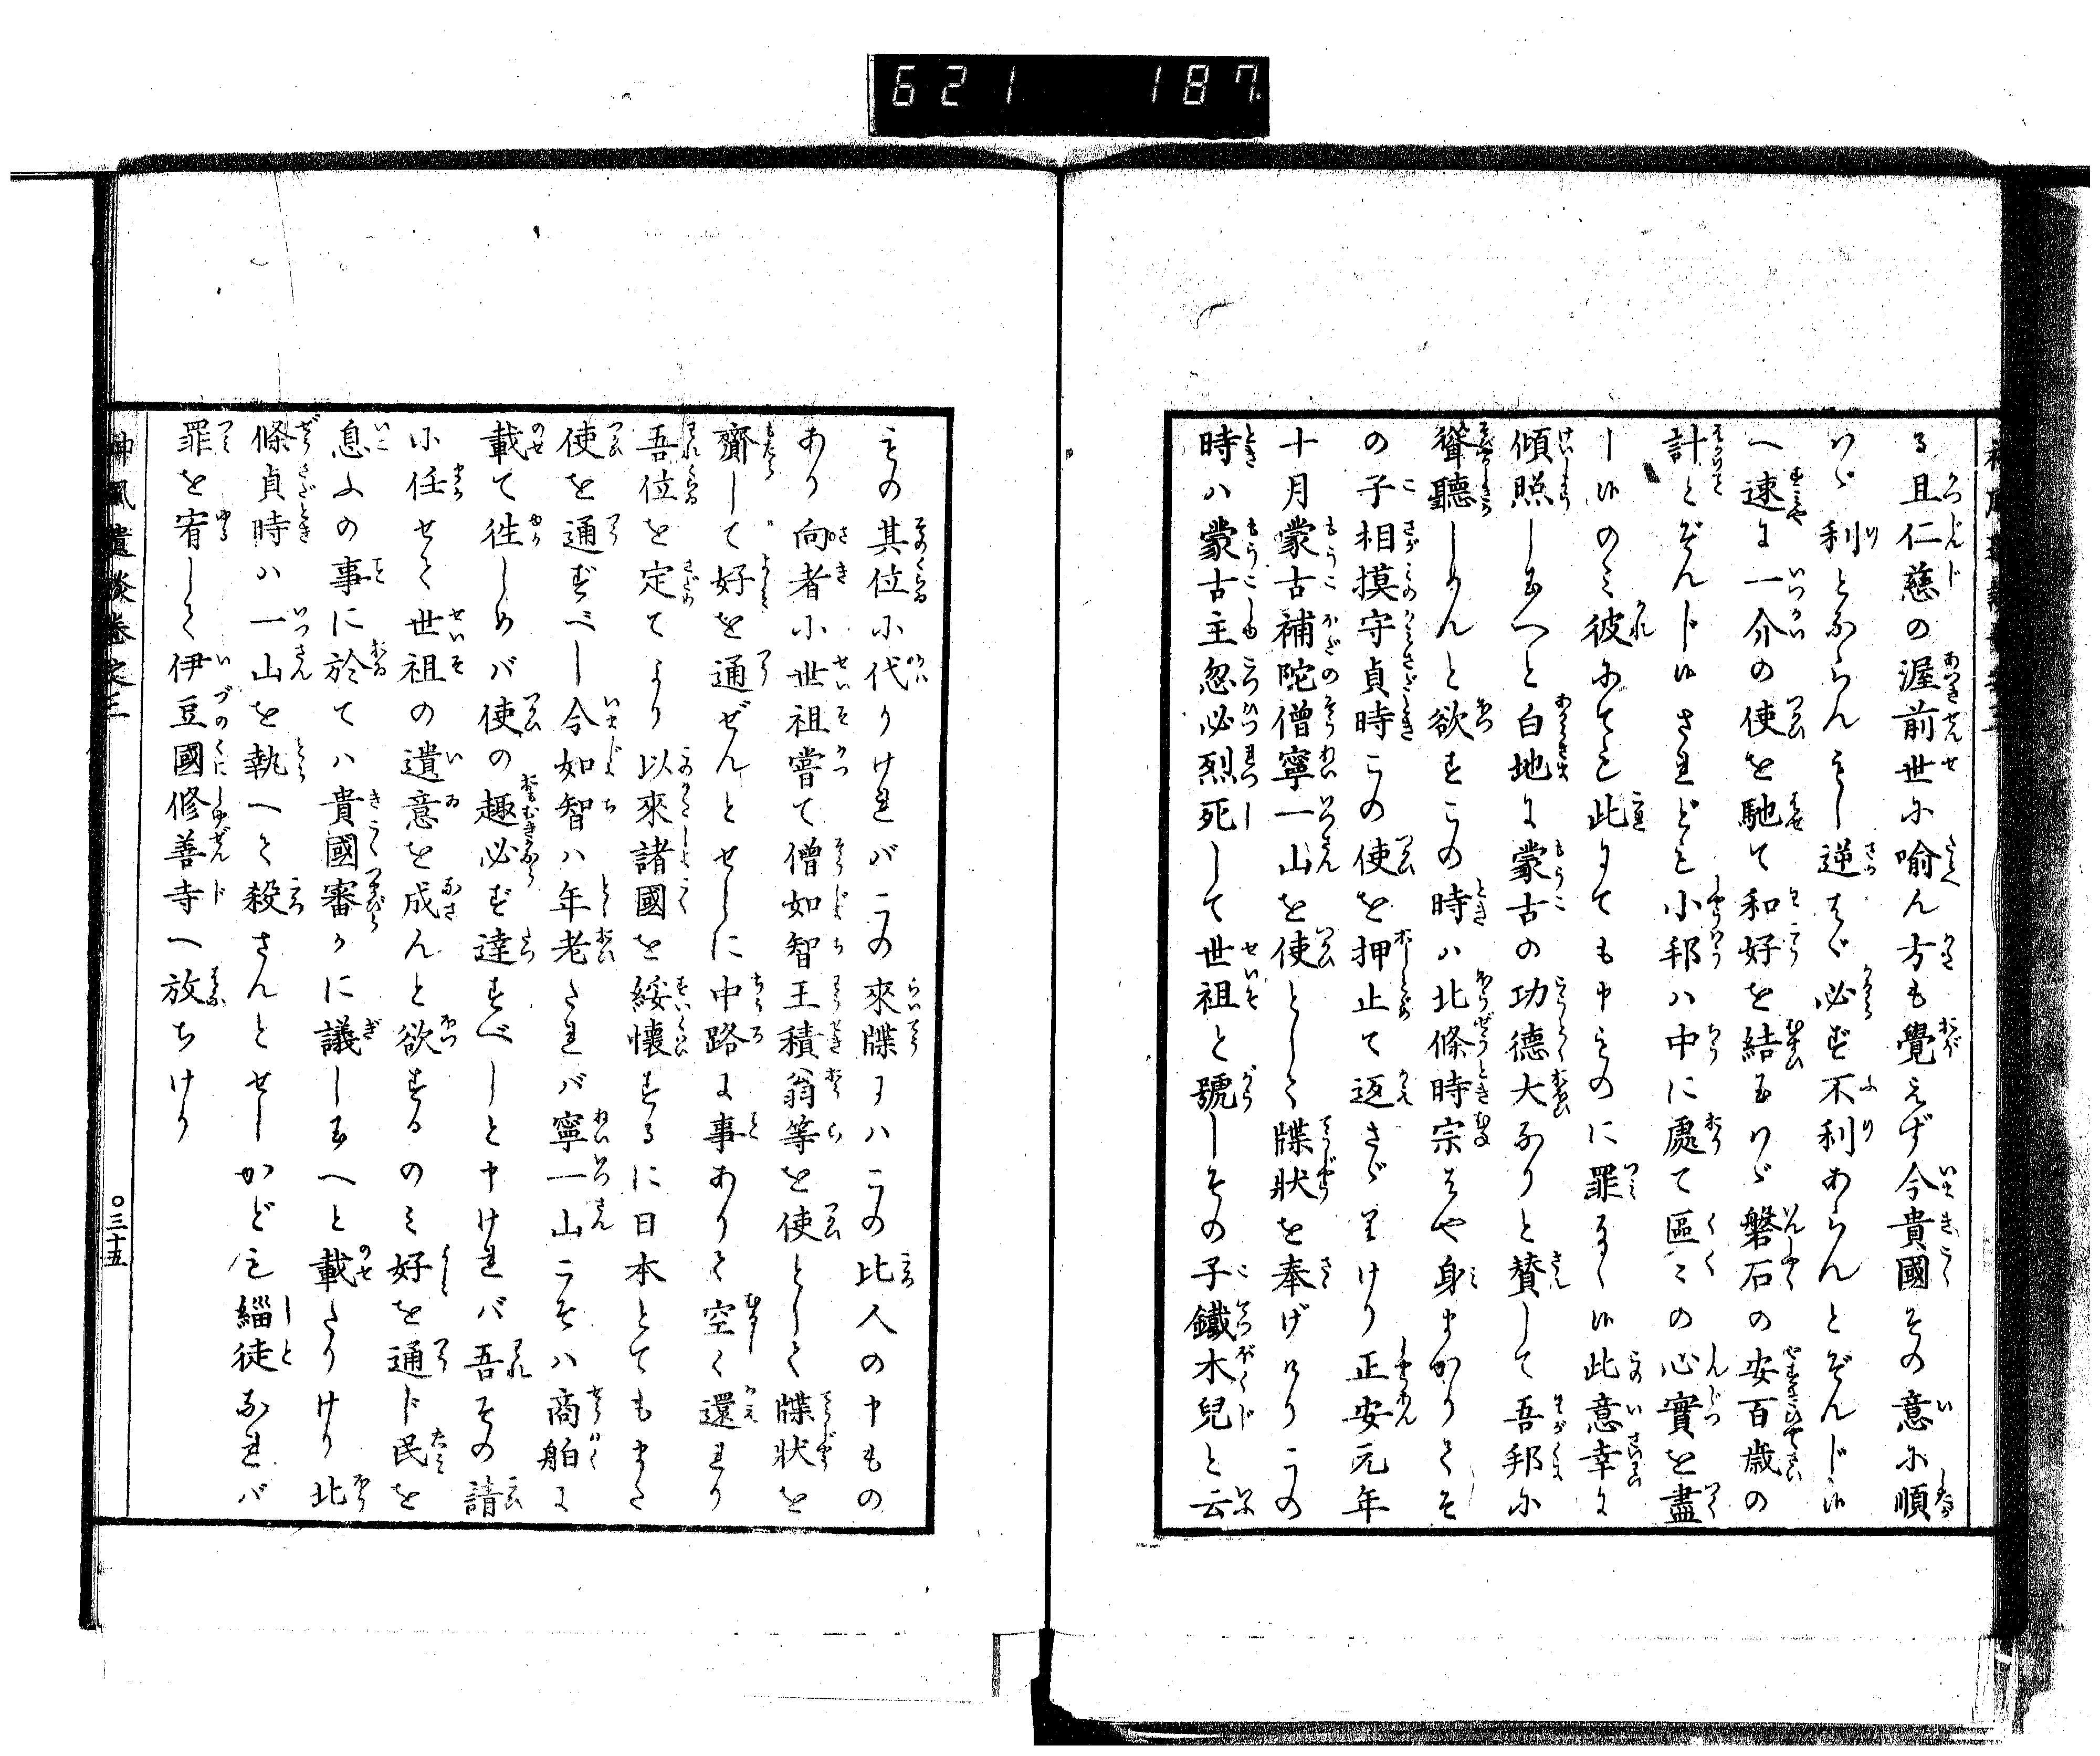 621 187
る且仁慈の渥前世に喩ん方も覺えず今貴國その意に順
はゞ利とならんもし逆はゞ必ず不利あらんとぞんじ候
へ速に一介の使を馳て和好を結玉はゞ磐石の安百歳の
計とぞんじ候されども小邦ハ中に處て區〻の心實を盡
し候のミ彼にても此にても申ものに罪なく候此意幸に
傾照し玉へと白地に蒙古の功德大なりと賛して吾邦に
聳聽しめんと欲すこの時ハ北條時宗はや身まかりてそ
の子相摸守貞時この使を押止て返さゞりけり正安元年
十月蒙古補陀僧寧一山を使として牒状を奉げけりこの
時ハ蒙古主忽必烈死して世祖と號しその子鐵木兒と云
もの其位に代りけれバこの來牒にハこの比人の申もの
あり向者に世祖嘗て僧如智王積翁等を使として牒状を
齎して好を通ぜんとせしに中路に事ありて空く還れり
吾位を定てより以來諸國を綏懷するに日本とてもまた
使を通ずべし今如智ハ年老たれバ寧一山こそハ商舶に
載て徃しめバ使の趣必ず達すべしと申けれバ吾その請
に任せて世祖の遺意を成んと欲するのミ好を通じ民を
息ふの事に於てハ貴國審かに議し玉へと載たりけり北
條貞時ハ一山を執へて殺さんとせしかども緇徒なれバ
罪を宥して伊豆國修善寺へ放ちけり
神風遺談卷之三
〇三十五